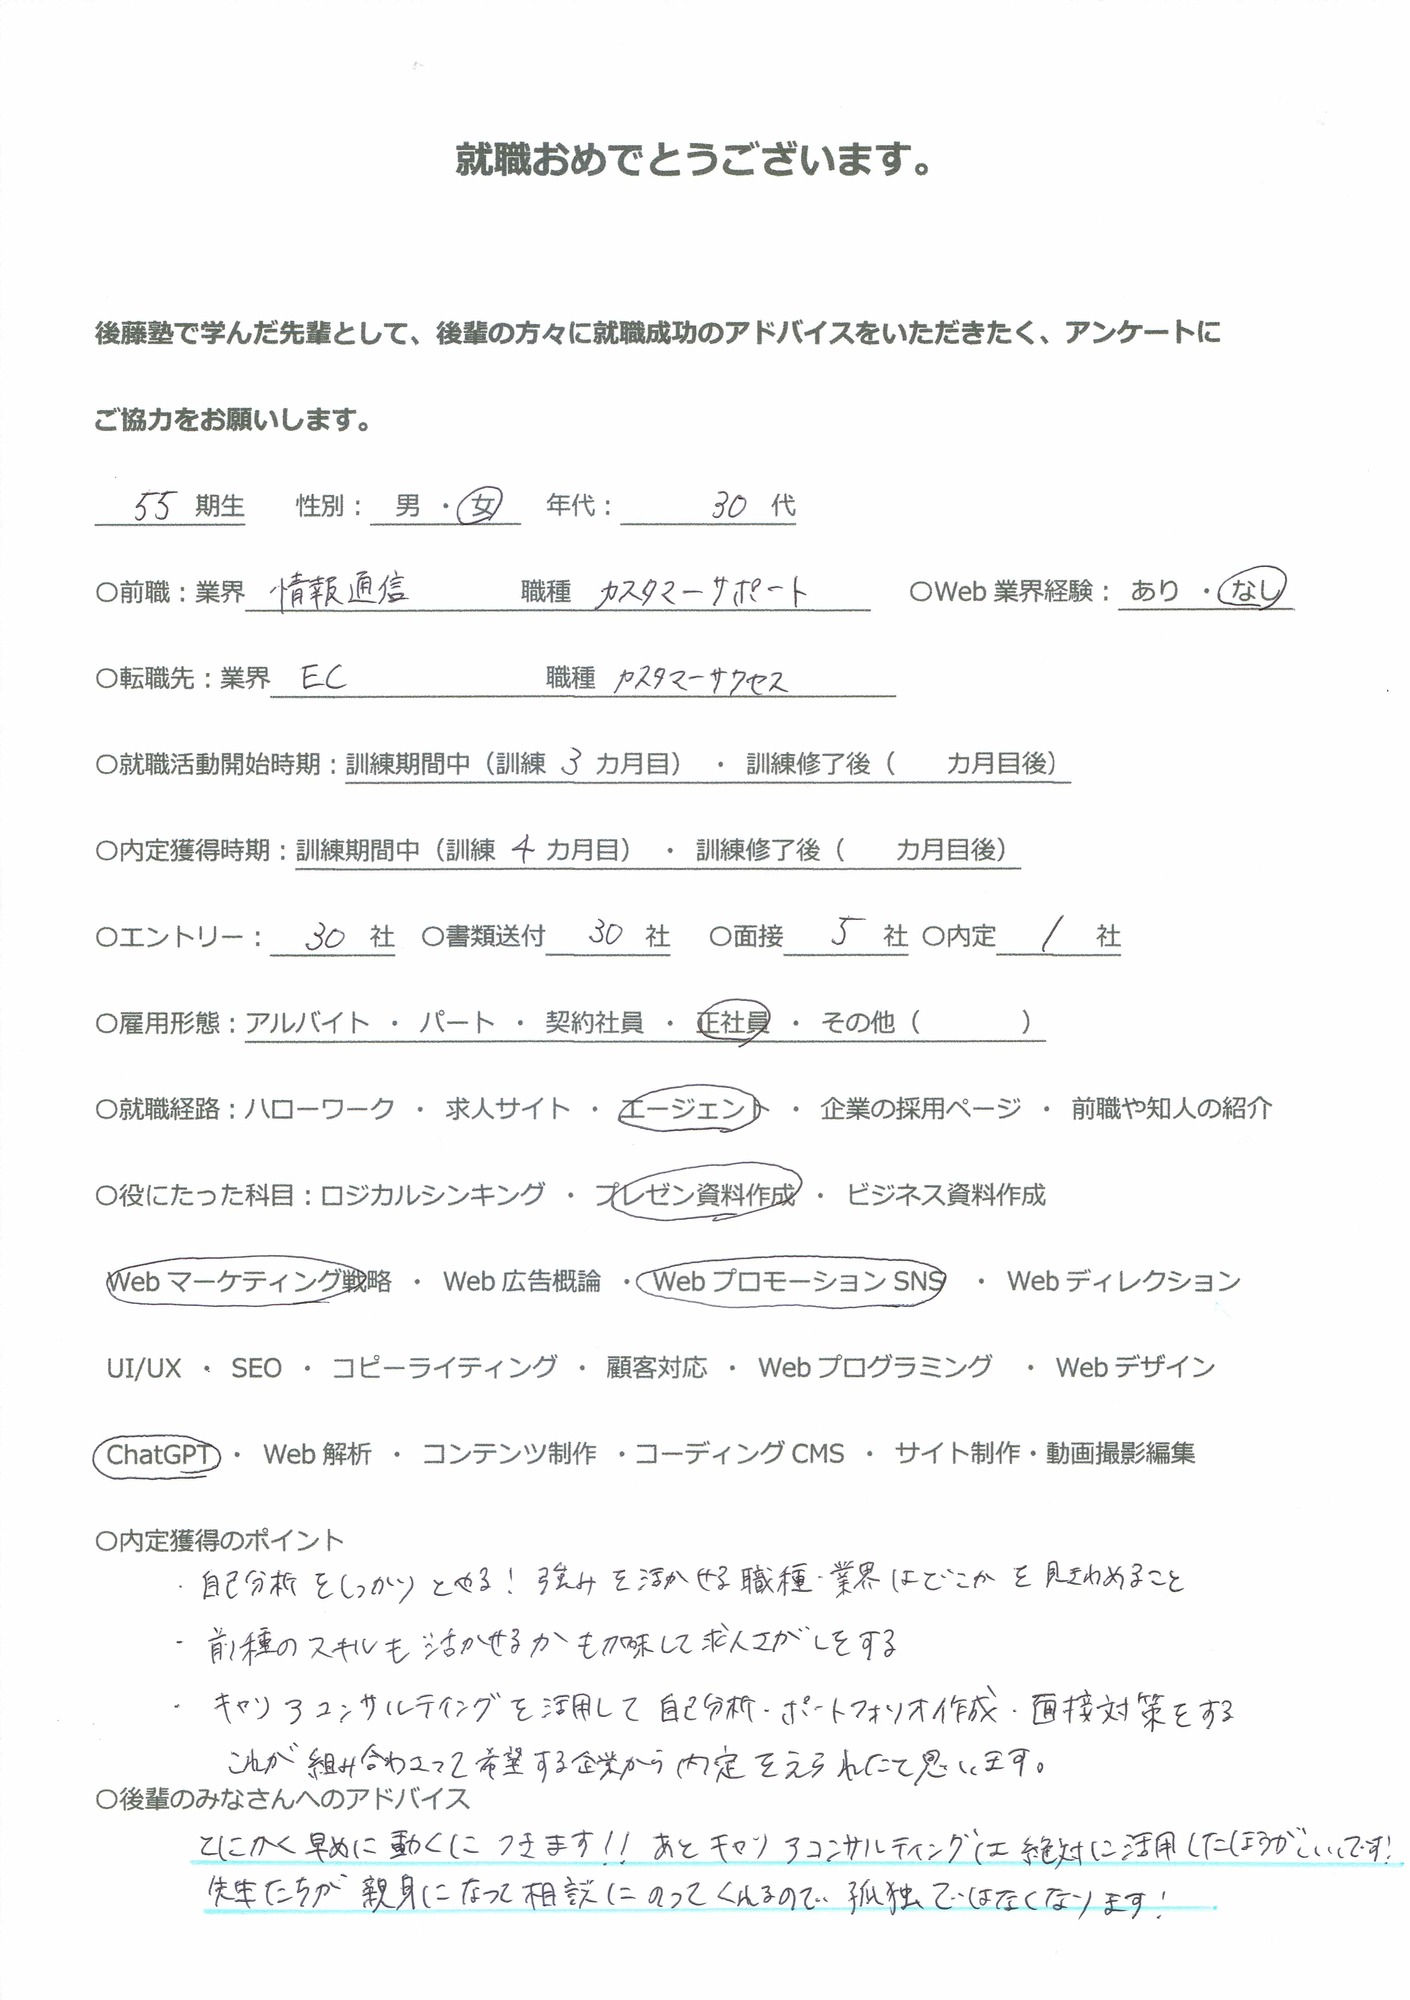 就職おめでとうございます。
後藤塾で学んだ先輩として、後輩の方々に就職成功のアドバイスをいただきたく、アンケートに
ご協力をお願いします。
55 期生 性別： 男 ・ 女 年代： 30 代
○前職：業界 情報通信 職種 カスタマーサポート ○Web 業界経験： あり ・ なし
○転職先：業界 EC 職種 カスタマーサクセス
○就職活動開始時期：訓練期間中（訓練 3 カ月目） ・ 訓練修了後（ カ月目後）
○内定獲得時期：訓練期間中（訓練 4 カ月目） ・ 訓練修了後（ カ月目後）
○エントリー： 30 社 ○書類送付 30 社 ○面接 5 社 ○内定 1 社
○雇用形態：アルバイト ・ パート ・ 契約社員 ・ 正社員 ・ その他（ ）
○就職経路：ハローワーク ・ 求人サイト ・ エージェント ・ 企業の採用ページ ・ 前職や知人の紹介
○役にたった科目：ロジカルシンキング ・ プレゼン資料作成 ・ ビジネス資料作成
Web マーケティング戦略 ・ Web 広告概論 ・ Web プロモーション SNS ・ Web ディレクション
UI/UX ・ SEO ・ コピーライティング ・ 顧客対応 ・ Web プログラミング ・ Web デザイン
ChatGPT ・ Web 解析 ・ コンテンツ制作 ・コーディング CMS ・ サイト制作・動画撮影編集
○内定獲得のポイント
・ 自己分析をしっかりとやる！強みを活かせる職種・業界はどこかを見きわめること
・ 前種のスキルも活かせるかも加味して求人さがしをする
・ キャリアコンサルティングを活用して自己分析・ポートフォリオ作成・面接対策をする
これが組み合わさって希望する企業から内定をえられたと思います。
○後輩のみなさんへのアドバイス
とにかく早めに動くにつきます!! あとキャリアコンサルティングは絶対に活用したほうがいいです!
先生たちが親身になって相談にのってくれるので、孤独ではなくなります!